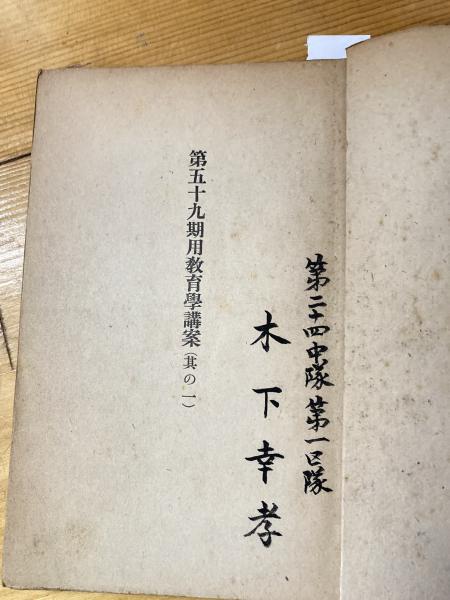 第二十四中隊第一区隊
木下幸孝
第五十九期用教育學講案(其の一)